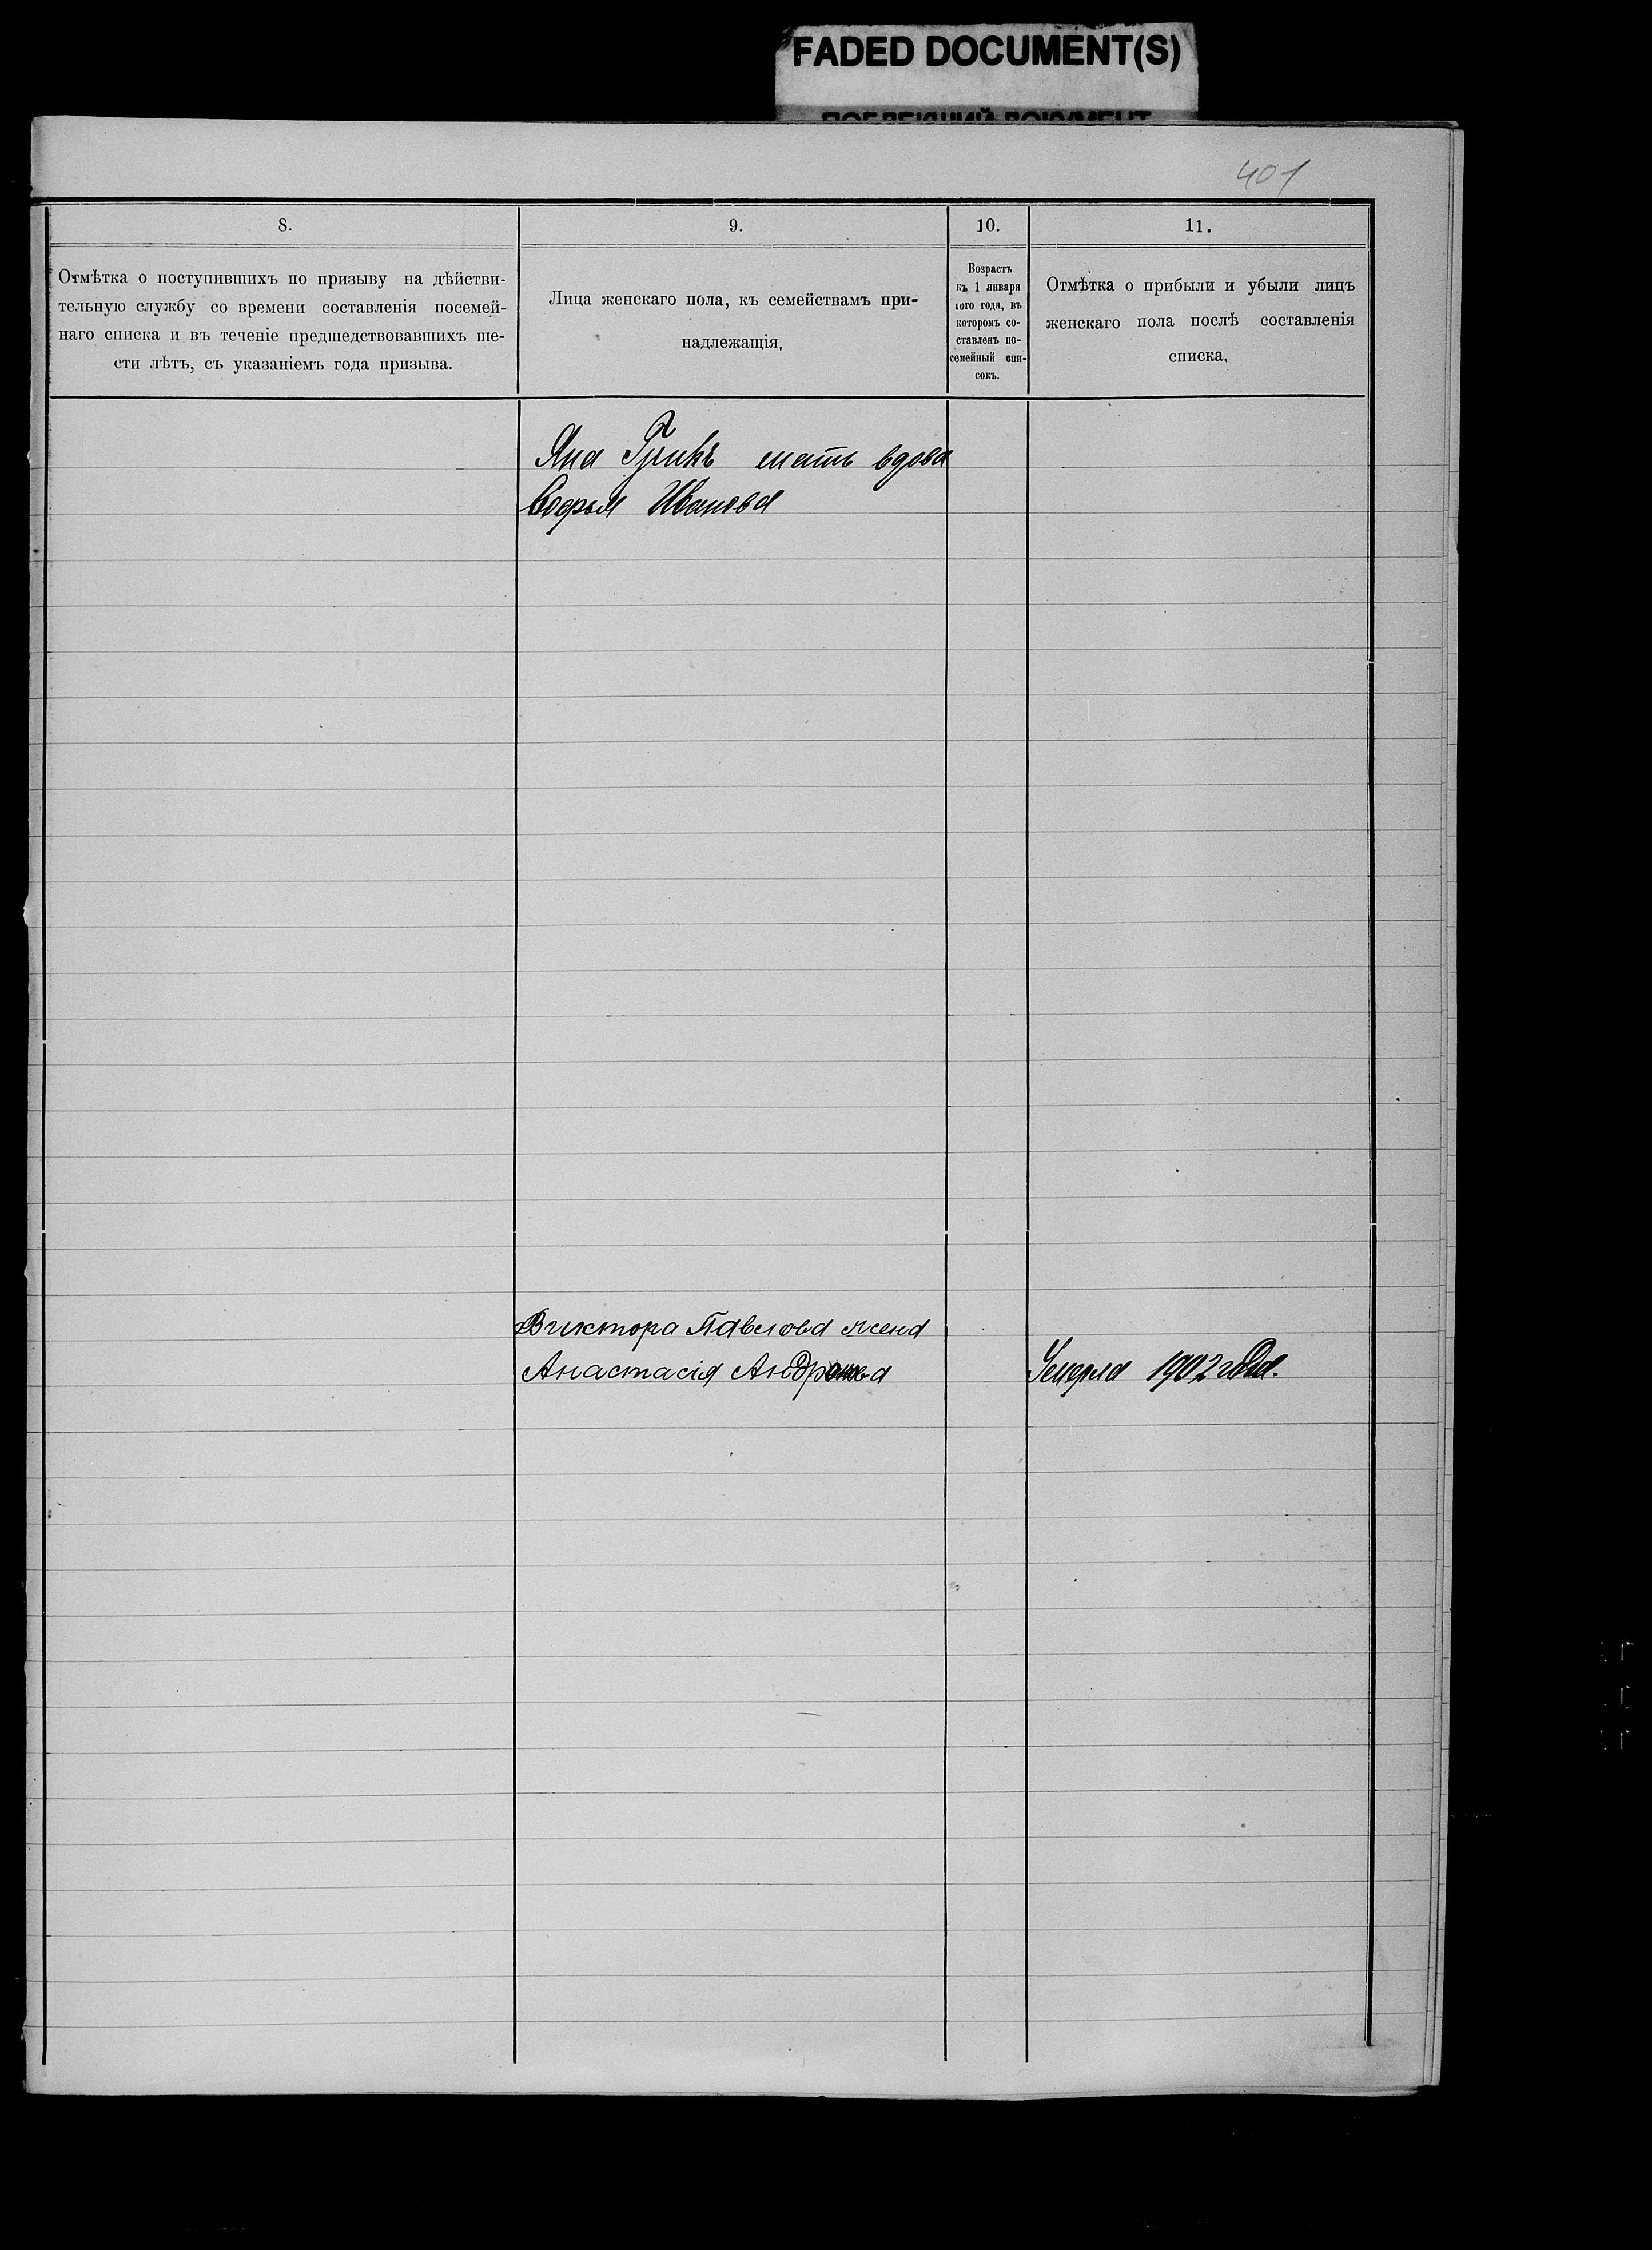 FADED DOCUMENT(S)
ПОБЛЕКШИЙ ДОКУМЕНТ
401
8.
9.
10.
11.
Отмѣтка о поступившихъ по призыву на дѣйстви-
тельную службу со времени составленія посемей-
наго списка и въ теченіе предшедствовавшихъ ше-
сти лѣтъ, съ указаніемъ года призыва.
Лица женскаго пола, къ семействамъ при-
надлежащія,
Возрастъ
къ 1 января
1ого года, въ
которомъ со-
ставленъ по-
семейный спи-
сокъ.
Отмѣтка о прибыли и убыли лицъ
женскаго пола послѣ составленія
списка.
Яна мать вдова
Софья Иванова
Виктора Павлова жена
Анастасія
Умерла 1902 года.